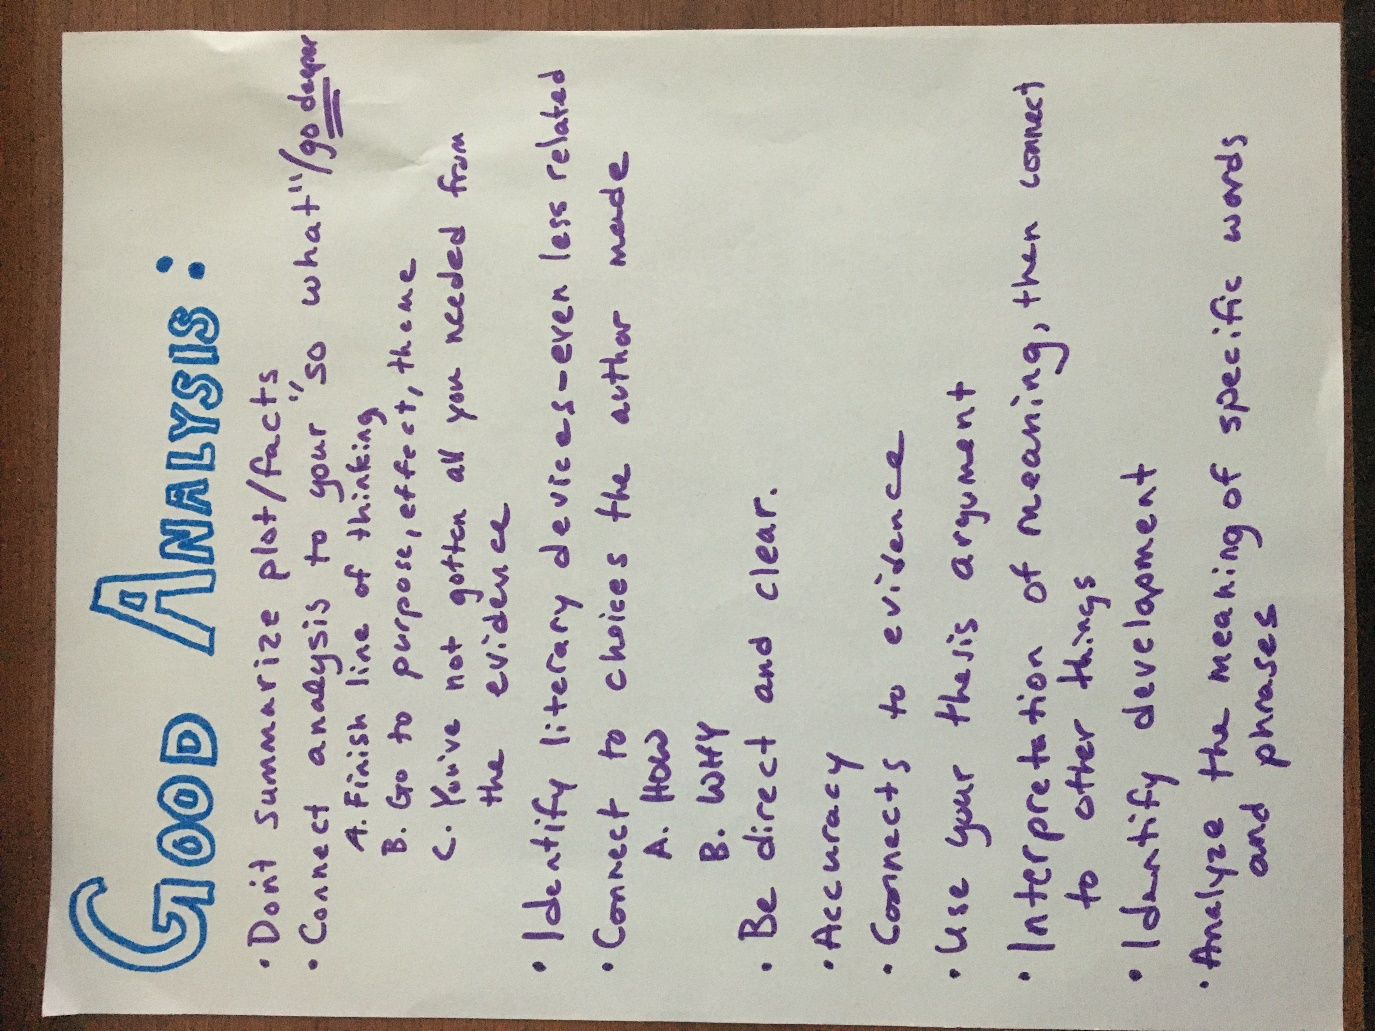 GOOD ANALYSIS:
• Don't summarize plot/facts
• Connect analysis to your "so what"/go deeper
A. Finish line of thinking
B. Go to purpose, effect, theme
C. You've not gotten all you needed from
the evidence
• Identify literary devices-even less related
• Connect to choices the author made
A. HOW
B. WHY
• Be direct and clear.
• Accuracy
• Connects to evidence
• Use your thesis argument
• Interpretation of meaning, then connect
to other things
• Identify development
• Analyze the meaning of specific words
and phrases